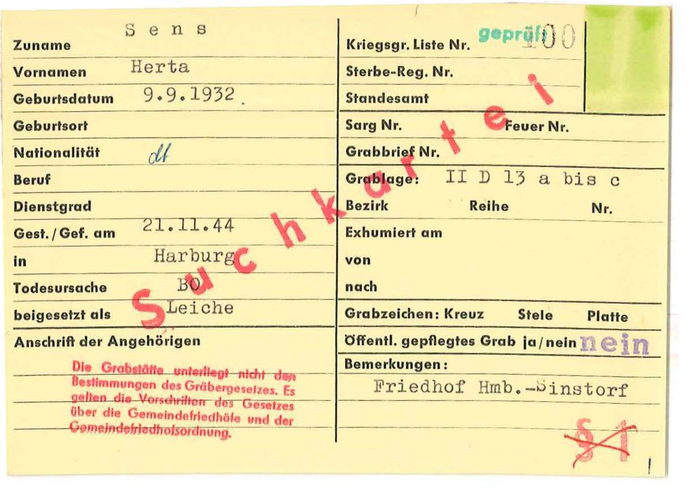 Zuname Sens
Vornamen Herta
Geburtsdatum 9.9.1932.
Geburtsort
Nationalität dt
Beruf
Dienstgrad
Gest./Gef. am 21.11.44
in Harburg
Todesursache BO
beigesetzt als Leiche
Anschrift der Angehörigen
Die Grabstätte unterliegt nicht den
Bestimmungen des Gräbergesetzes. Es
gelten die Vorschriften des Gesetzes
über die Gemeindefriedhöfe und der
Gemeindefriedhofsordnung.
Suchkartei
geprüft
Kriegsgr. Liste Nr. 100
Sterbe-Reg. Nr.
Standesamt
Sarg Nr. Feuer Nr.
Grabbrief Nr.
Grablage: II D 13 a bis c
Bezirk Reihe Nr.
Exhumiert am
von
nach
Grabzeichen: Kreuz Stele Platte
Öffentl. gepflegtes Grab ja/nein nein
Bemerkungen:
Friedhof Hmb.-Sinstorf
§ 1